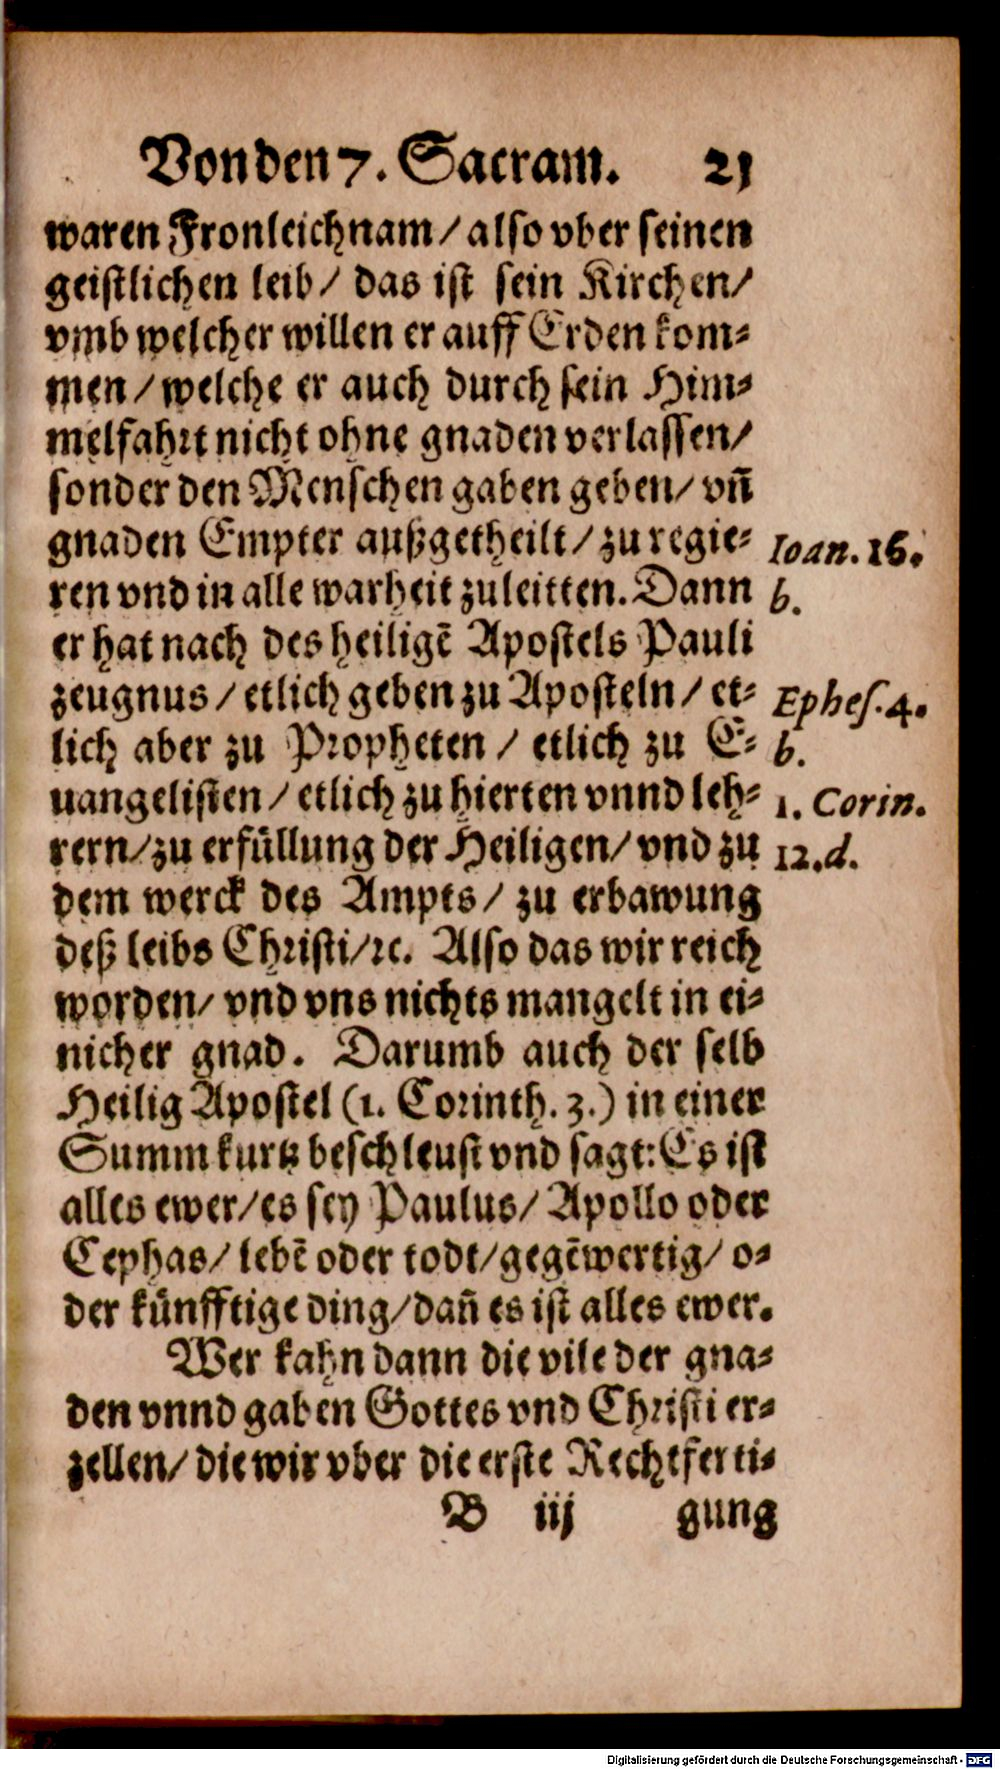 Von den 7. Sacram. 21
waren Fronleichnam / also vber seinen
geistlichen leib / das ist sein Kirchen /
vmb welcher willen er auff Erden kom-
men / welche er auch durch sein Him-
melfahrt nicht ohne gnaden verlassen /
sonder den Menschen gaben geben / vñ
gnaden Empter außgetheilt / zu regie-
ren vnd in alle warheit zuleitten. Dann
er hat nach des heiligē Apostels Pauli
zeugnus / etlich geben zu Aposteln / et-
lich aber zu Propheten / etlich zu E-
uangelisten / etlich zu hierten vnnd leh-
rern / zu erfüllung der Heiligen / vnd zu
dem werck des Ampts / zu erbawung
deß leibs Christi /ꝛc. Also das wir reich
worden / vnd vns nichts mangelt in ei-
nicher gnad. Darumb auch der selb
Heilig Apostel (1. Corinth. 3.) in einer
Summ kurtz beschleust vnd sagt: Es ist
alles ewer / es sey Paulus / Apollo oder
Cephas / lebē oder todt / gegēwertig / o-
der künfftige ding / dañ es ist alles ewer.
Wer kahn dann die vile der gna-
den vnnd gaben Gottes vnd Christi er-
zellen / die wir vber die erste Rechtferti-
B iij gung
Ioan. 16.
b.
Ephes. 4.
b.
1. Corin.
12. d.
Digitalisierung gefördert durch die Deutsche Forschungsgemeinschaft - DFG